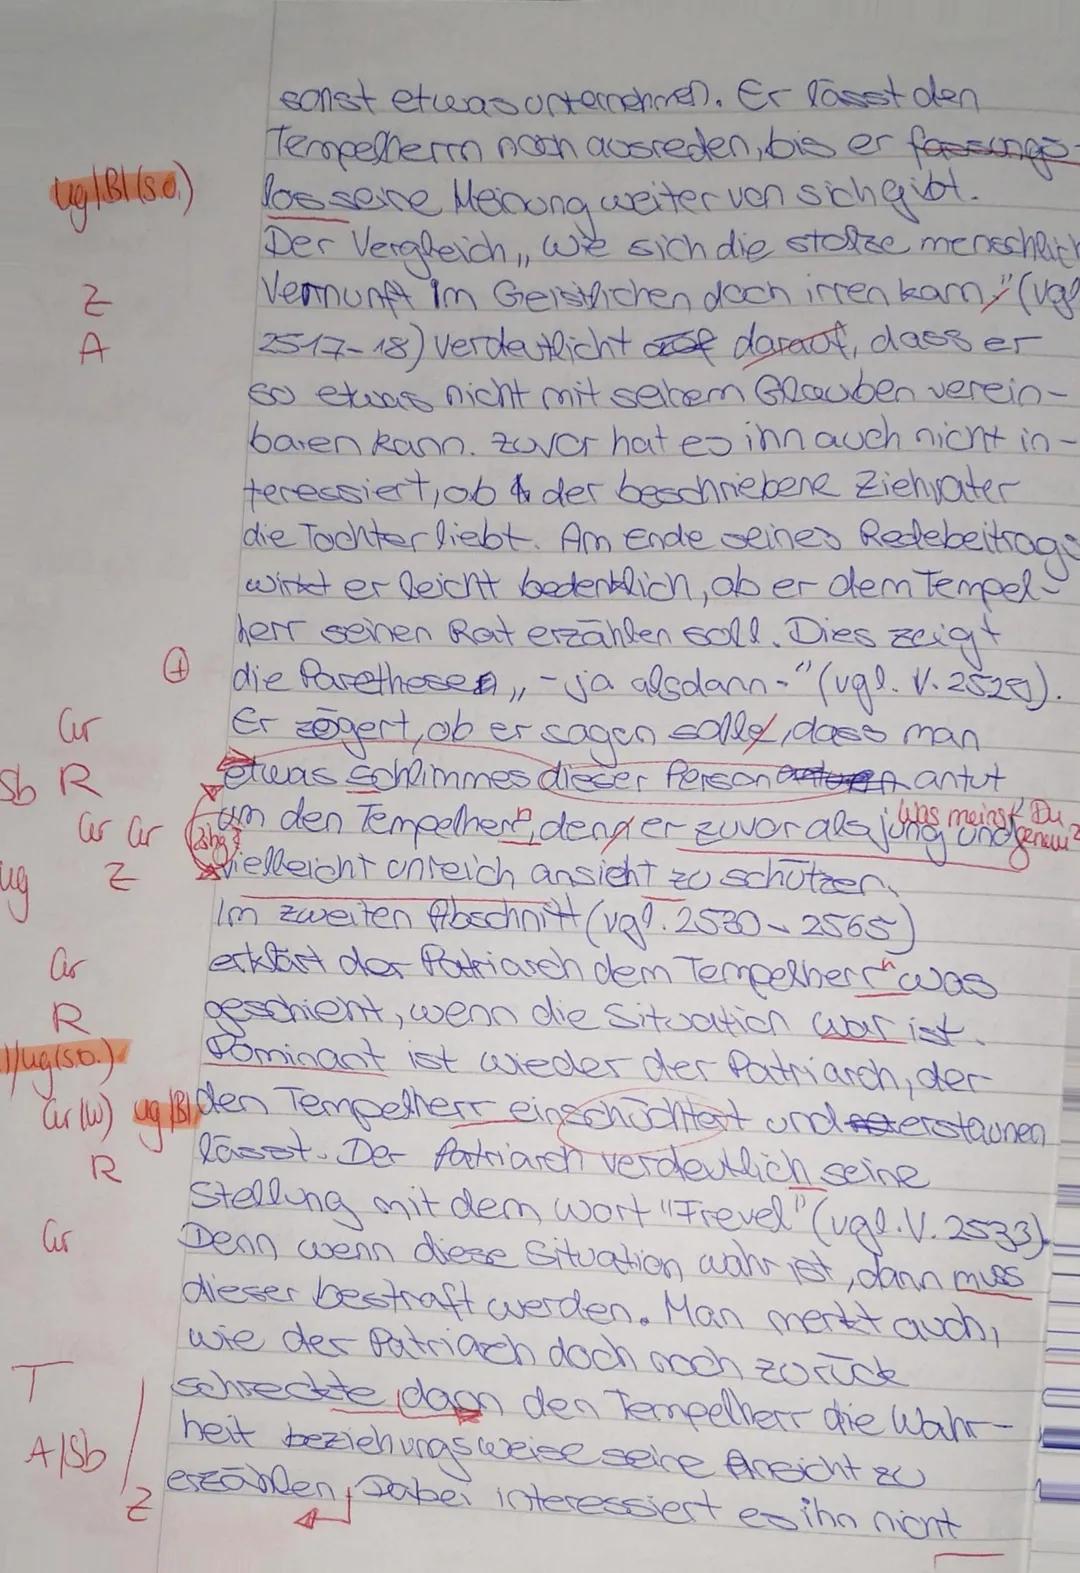 sonst etwas unternehmen. Er lässt den
Tempelherrn noch ausreden, bis er fassungs-
ug/Bl (s.o.) los seine Meinung weiter von sich gibt.
Der Vergleich „ wie sich die stolze menschlich
Z Vernunft im Geistlichen doch irren kann," (vgl
A 2517-18) verdeutlicht auf darauf, dass er
so etwas nicht mit seinem Glauben verein-
baren kann. Zuvor hat es ihn auch nicht in-
teressiert, ob der beschriebene Ziehvater
die Tochter liebt. Am Ende seines Redebeitrags
wirkt er leicht bedenklich, ob er dem Tempel-
herr seinen Rat erzählen soll. Dies zeigt
+ die Parethese „-ja alsdann-" (vgl. V. 2529).
Gr Er zögert, ob er sagen solle, dass man
Sb R etwas schlimmes dieser Person antut
Gr Gr um den Tempelherrn, denn er zuvor als jung und
Was meinst Du genau?
ug Z vielleicht unreich ansieht zu schützen.
Im zweiten Abschnitt (vgl. 2530 - 2565)
Gr erklärt der Patriarch dem Tempelherrn was
R geschieht, wenn die Situation war ist.
/ug (s.o.) Dominant ist wieder der Patriarch, der
Gr (W) ug/Bl den Tempelherr einschüchtert und erstaunen
R lässt. Der Patriarch verdeutlich seine
Stellung mit dem Wort "Frevel" (vgl. V. 2533).
Gr Denn wenn diese Situation wahr ist, dann muss
dieser bestraft werden. Man merkt auch,
wie der Patriach doch noch zurück
T schreckte dann den Tempelherr die Wahr-
A/Sb heit beziehungsweise seine Ansicht zu
Z erzählen, Dabei interessiert es ihn nicht